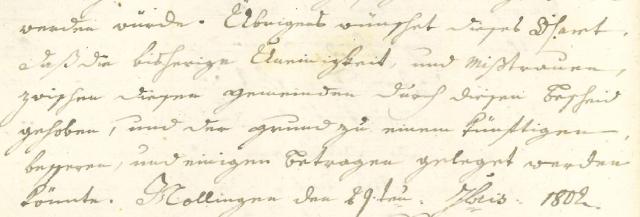 werden würde. Übrigens wünschet dieses Amt,
daß die bisherige Uneinigkeit, und Mißtrauen,
zwischen diesen gemeinden durch diesen bescheid
gehoben, und der grund zu einem künftigen,
besseren, und einigen betragen geleget werden
könnte. Mollingen den 29.ten 1802.